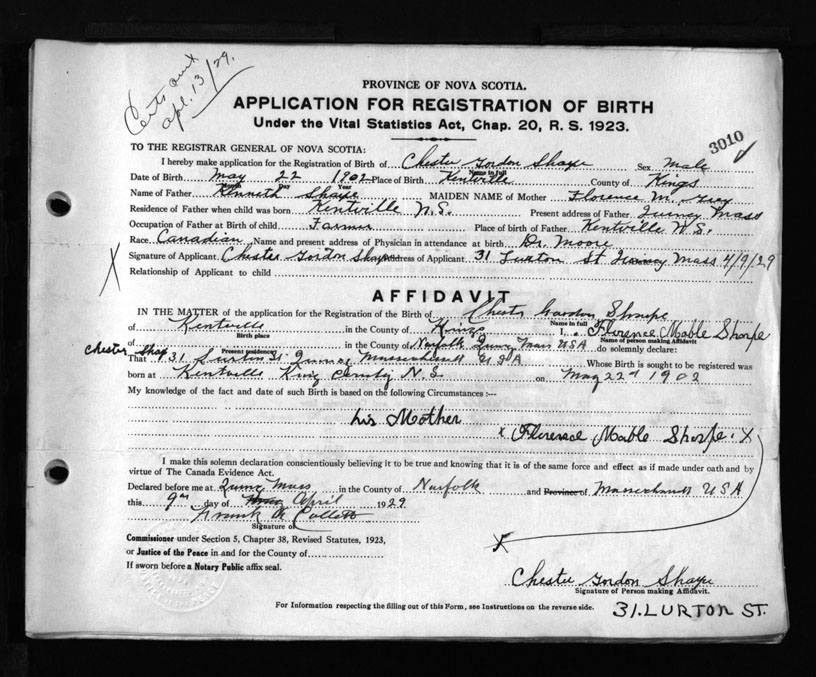 Certs out
apl. 13/29.
PROVINCE OF NOVA SCOTIA.
APPLICATION FOR REGISTRATION OF BIRTH
Under the Vital Statistics Act, Chap. 20, R. S. 1923.
3010
TO THE REGISTRAR GENERAL OF NOVA SCOTIA:
I hereby make application for the Registration of Birth of Chester Gordon Sharpe Sex Male
Name in full
Date of Birth May 22 1902 Place of Birth Kentville County of Kings
Month Day Year
Name of Father Kenneth Sharpe MAIDEN NAME of Mother Florence M.
Residence of Father when child was born Kentville N.S. Present address of Father Quincy Mass
Occupation of Father at Birth of child Farmer Place of birth of Father Kentville N.S.
Race Canadian Name and present address of Physician in attendance at birth Dr. Moore
X Signature of Applicant Chester Gordon Sharpe Address of Applicant 31 Lurton St Quincy Mass 4/9/29
Relationship of Applicant to child
AFFIDAVIT
IN THE MATTER of the application for the Registration of the Birth of Chester Gordon Sharpe
Name in full
of Kentville in the County of Kings I, Florence Mable Sharpe
Birth place Name of person making Affidavit
of in the County of Norfolk Quincy Mass USA do solemnly declare:
Present residence
Chester Sharp
That 31 Lurton St Quincy Massachusetts USA Whose Birth is sought to be registered was
born at Kentville King County N.S. on May 22nd 1902
My knowledge of the fact and date of such Birth is based on the following Circumstances :—
his Mother
x Florence Mable Sharpe. X
I make this solemn declaration conscientiously believing it to be true and knowing that it is of the same force and effect as if made under oath and by
virtue of The Canada Evidence Act.
Declared before me at Quincy Mass in the County of Norfolk and Province of Massachusetts USA
this 9th day of April 1929
Frank A
Signature of
Commissioner under Section 5, Chapter 38, Revised Statutes, 1923,
or Justice of the Peace in and for the County of
If sworn before a Notary Public affix seal.
X
Chester Gordon Sharpe
Signature of Person making Affidavit.
For Information respecting the filling out of this Form, see Instructions on the reverse side.
31. LURTON ST.